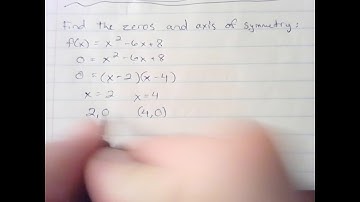 Find the zeros and axis of symmetry:
f(x) = x² - 6x + 8
0 = x² - 6x + 8
0 = (x - 2)(x - 4)
x = 2 x = 4
2,0 (4,0)